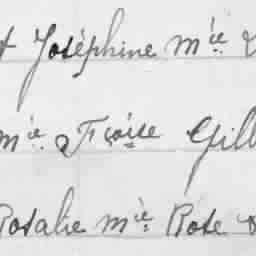 Joséphine Mie
Mie Fçoise Gill
Rosalie Mie Rose